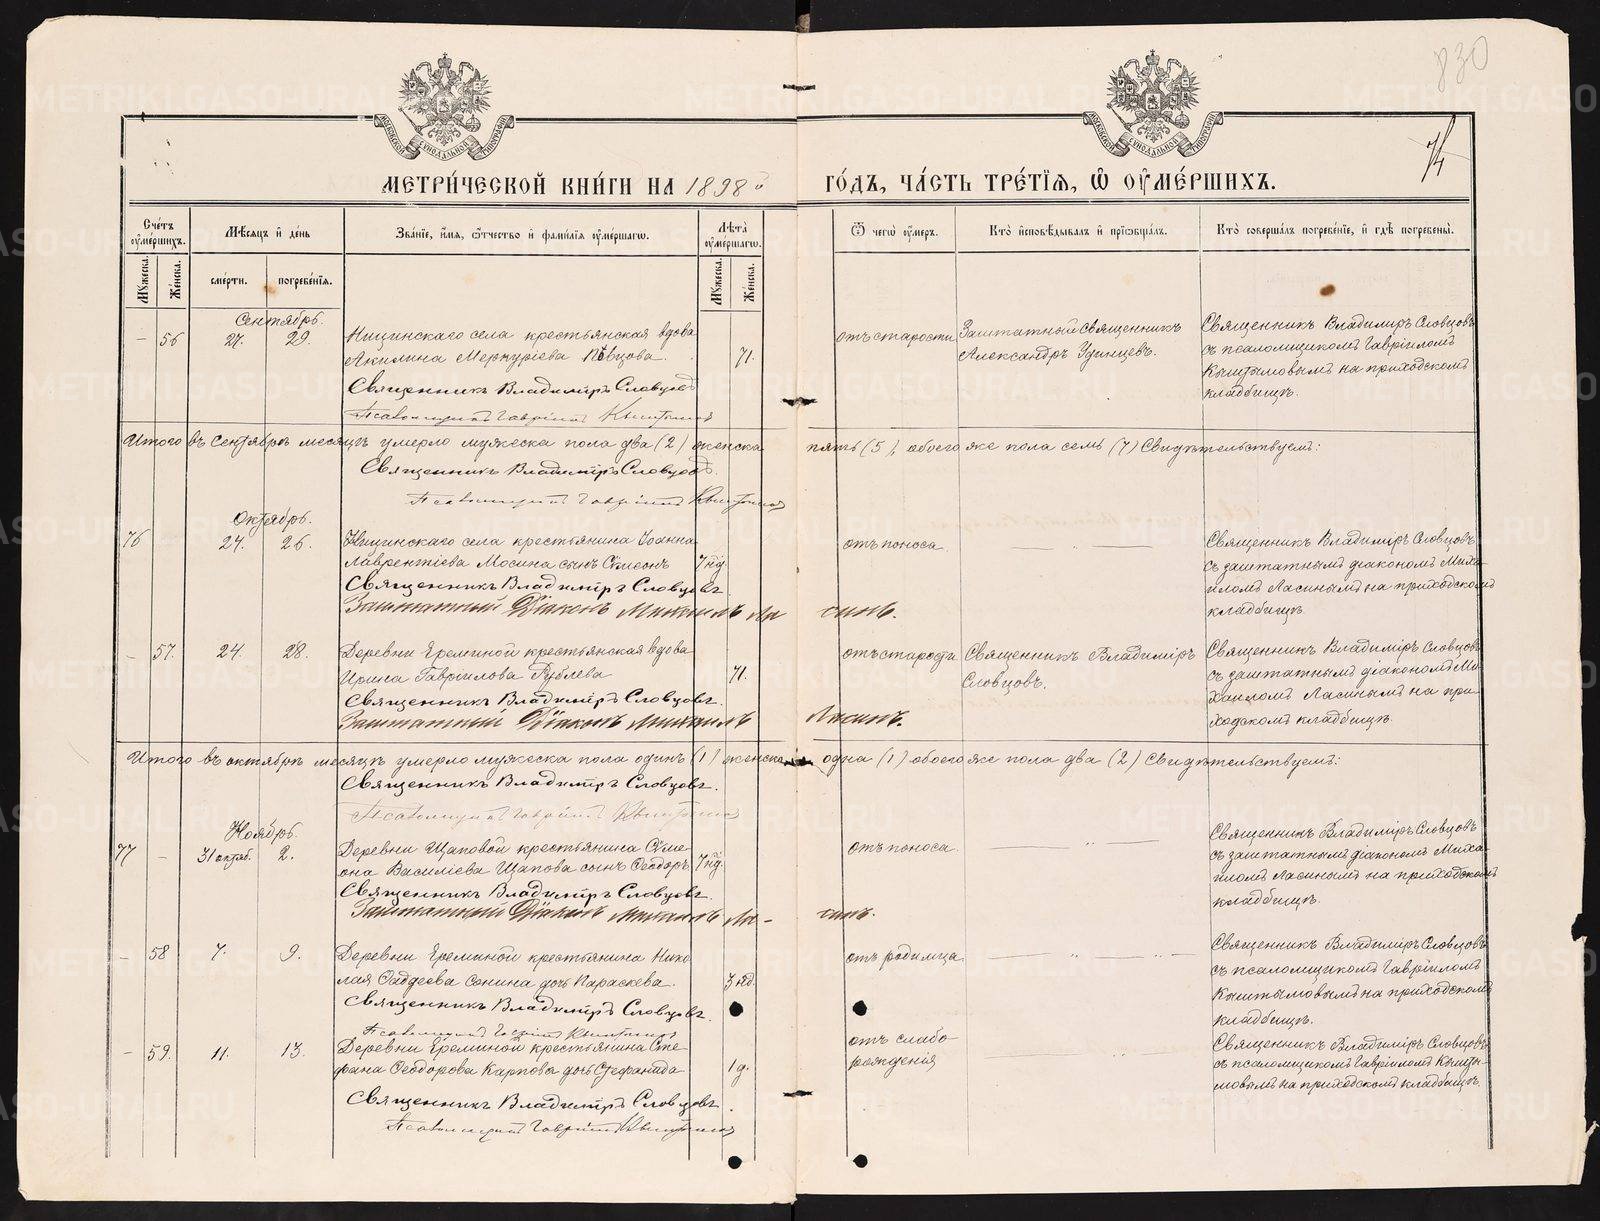 830
74
МЕТРИ́ЧЕСКОЙ КНИ́ГИ НА 1898 й
ГО́ДЪ, ЧА́СТЬ ТРЕ́ТЇѦ, Ѽ ОУ҆МЕ́РШИХЪ.
Сче́тъ оу҆ме́ршихъ.
Мѣ́сѧцъ и҆ де́нь
Зва́нїе, и҆́мѧ, ѻ҆́тчество и҆ фами́лїѧ оу҆ме́ршагѡ.
Лѣ́та оу҆ме́ршагѡ.
Ѿ чегѡ̀ оу҆́меръ.
Кто̀ и҆сповѣ́дывалъ и҆ прїѡбща́лъ.
Кто̀ соверша́лъ погребе́нїе, и҆ гдѣ̀ погребены̀.
Мꙋ́жеска.
Же́нска.
сме́рти.
погребе́нїѧ.
Мꙋ́жеска.
Же́нска.
Сентябрь.
— 56 27. 29. Ницинскаго села крестьянская вдова
Акилина Меркуріева Пѣвцова. 71.
Священникъ Владиміръ Словцовъ
Псаломщикъ Гавріилъ Кыштымовъ
отъ старости
Заштатный священникъ
Александръ Удинцевъ.
Священникъ Владиміръ Словцовъ
съ псаломщикомъ Гавріиломъ
Кыштымовымъ на приходскомъ
кладбищѣ.
Итого въ сентябрѣ месяцѣ умерло мужеска пола два (2) женска пять (5), обоего же пола семь (7) Свидѣтельствуемъ:
Священникъ Владиміръ Словцовъ.
Псаломщикъ Гавріилъ Кыштымовъ
Октябрь.
76 24. 26. Ницинскаго села крестьянина Іоанна
Лаврентіева Мосина сынъ Сѵмеонъ 7 нд.
Священникъ Владиміръ Словцовъ
Заштатный Діаконъ Михаилъ Ласинъ.
отъ поноса.
— „ —
Священникъ Владиміръ Словцовъ
съ заштатнымъ діакономъ Миха-
иломъ Ласинымъ на приходскомъ
кладбищѣ
— 57. 24. 28. Деревни Ереминой крестьянская вдова
Ирина Гавріилова Рублева 71.
Священникъ Владиміръ Словцовъ.
Заштатный Діаконъ Михаилъ Ласинъ.
отъ старости
Священникъ Владиміръ
Словцовъ.
Священникъ Владиміръ Словцовъ
съ заштатнымъ діакономъ Ми-
хаиломъ Ласинымъ на при-
ходскомъ кладбищѣ.
Итого въ октябрѣ месяцѣ умерло мужеска пола одинъ (1) женска одна (1) обоего же пола два (2) Свидѣтельствуемъ:
Священникъ Владиміръ Словцовъ.
Псаломщикъ Гавріилъ Кыштымовъ
Ноябрь.
77 — 31 октяб. 2. Деревни Щаповой крестьянина Сѵме-
она Василіева Щапова сынъ Ѳеодоръ 7 нд.
Священникъ Владиміръ Словцовъ.
Заштатный Діаконъ Михаилъ Ла-синъ.
отъ поноса.
— „ —
Священникъ Владиміръ Словцовъ
съ заштатнымъ діакономъ Миха-
иломъ Ласинымъ на приходскомъ
кладбищѣ.
— 58 7. 9. Деревни Ереминой крестьянина Нико-
лая Ѳаддеева Сонина дочь Параскева. 3 нд.
Священникъ Владиміръ Словцовъ.
Псаломщикъ Гавріилъ Кыштымовъ
отъ родимца
— „ —
Священникъ Владиміръ Словцовъ
съ псаломщикомъ Гавріиломъ
Кыштымовымъ на приходскомъ
кладбищѣ.
— 59. 11. 13. Деревни Ереминой крестьянина Сте-
фана Ѳеодорова Карпова дочь Стефанида 1 д.
Священникъ Владиміръ Словцовъ.
Псаломщикъ Гавріилъ Кыштымовъ
отъ слабо-
рожденія
— „ —
Священникъ Владиміръ Словцовъ
съ псаломщикомъ Гавріиломъ Кышты-
мовымъ на приходскомъ кладбищѣ.